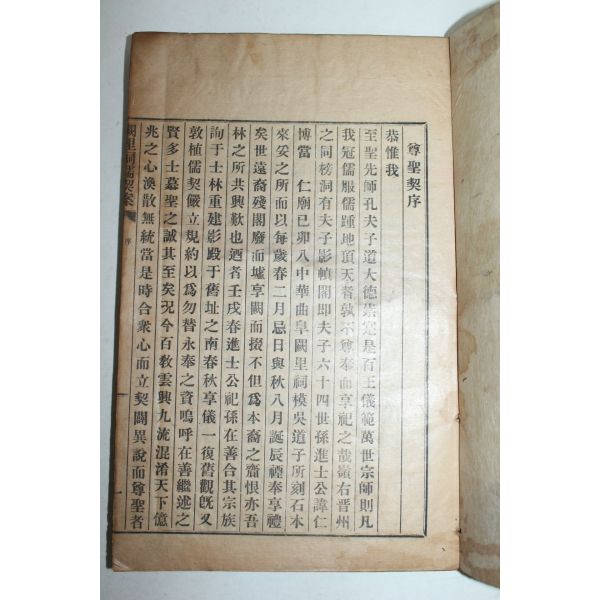 尊聖契序
恭惟我
至聖先師孔夫子道大德崇寔是百王儀範萬世宗師則凡
我冠儒服儒踵地頂天者孰不尊奉而享祀之哉嶺右晋州
之同榜洞有夫子影幀閣即夫子六十四世孫進士公諱仁
博當 仁廟己卯入中華曲阜闕里祠模吳道子所刻石本
來妥之所而以每歲春二月忌日與秋八月誕辰禋奉享禮
矣世遠裔殘閣廢而墟享闕而掇不但爲本裔之齎恨亦吾
林之所共興歎也迺者壬戌春進士公祀孫在善合其宗族
詢于士林重建影殿于舊址之南春秋享儀一復舊觀旣又
敦植儒契嚴立規約以爲勿替永奉之資嗚呼在善繼述之
賢多士慕聖之誠其至矣況今百敎雲興九流混淆天下億
兆之心渙散無統當是時合衆心而立契闢異說而尊聖者
闕里祠儒契案 序